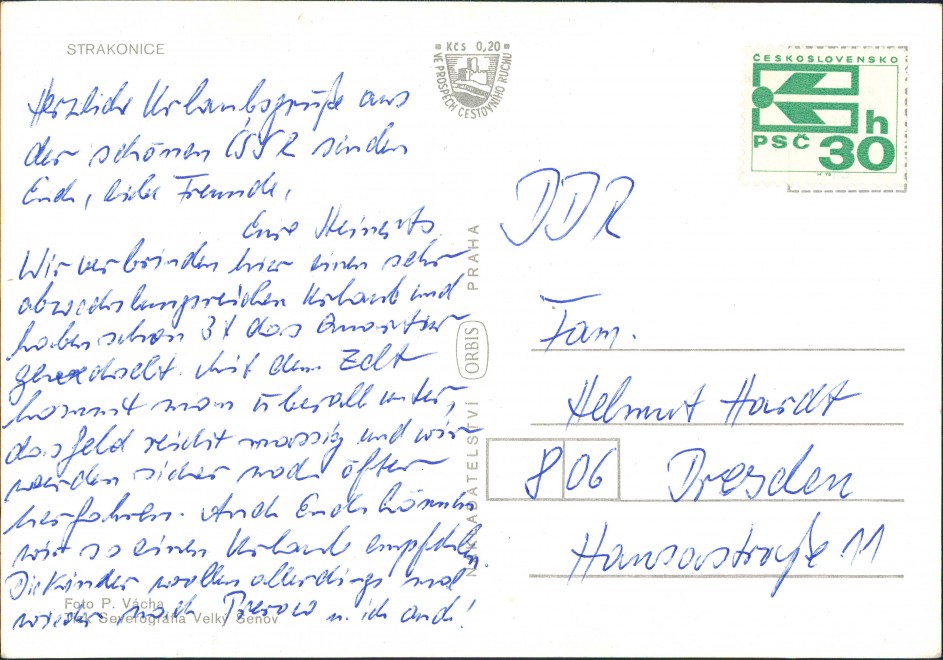 STRAKONICE
Herzliche Urlaubsgrüße aus
der schönen ČSSR senden
Euch, liebe Freunde,
Eure Heinerts.
Wir verbinden hier einen sehr
abwechslungsreichen Urlaub und
haben schon 3x das Quartier
gewechselt. Mit dem Zelt
kommt man überall unter,
das Geld reicht massig und wir
werden sicher noch öfter
herfahren. Auch Euch können
wir so einen Urlaub empfehlen.
Die Kinder wollen allerdings mal
wieder nach Prerow u. ich auch!
Foto P. Vácha
Tisk Severografia Velký Šenov
NAKLADATELSTVÍ ORBIS PRAHA
KČS 0,20
VE PROSPĚCH CESTOVNÍHO RUCHU
ČESKOSLOVENSKO
PSČ 30h
DDR
Fam.
Helmut Hardt
806 Dresden
Hansastraße 11